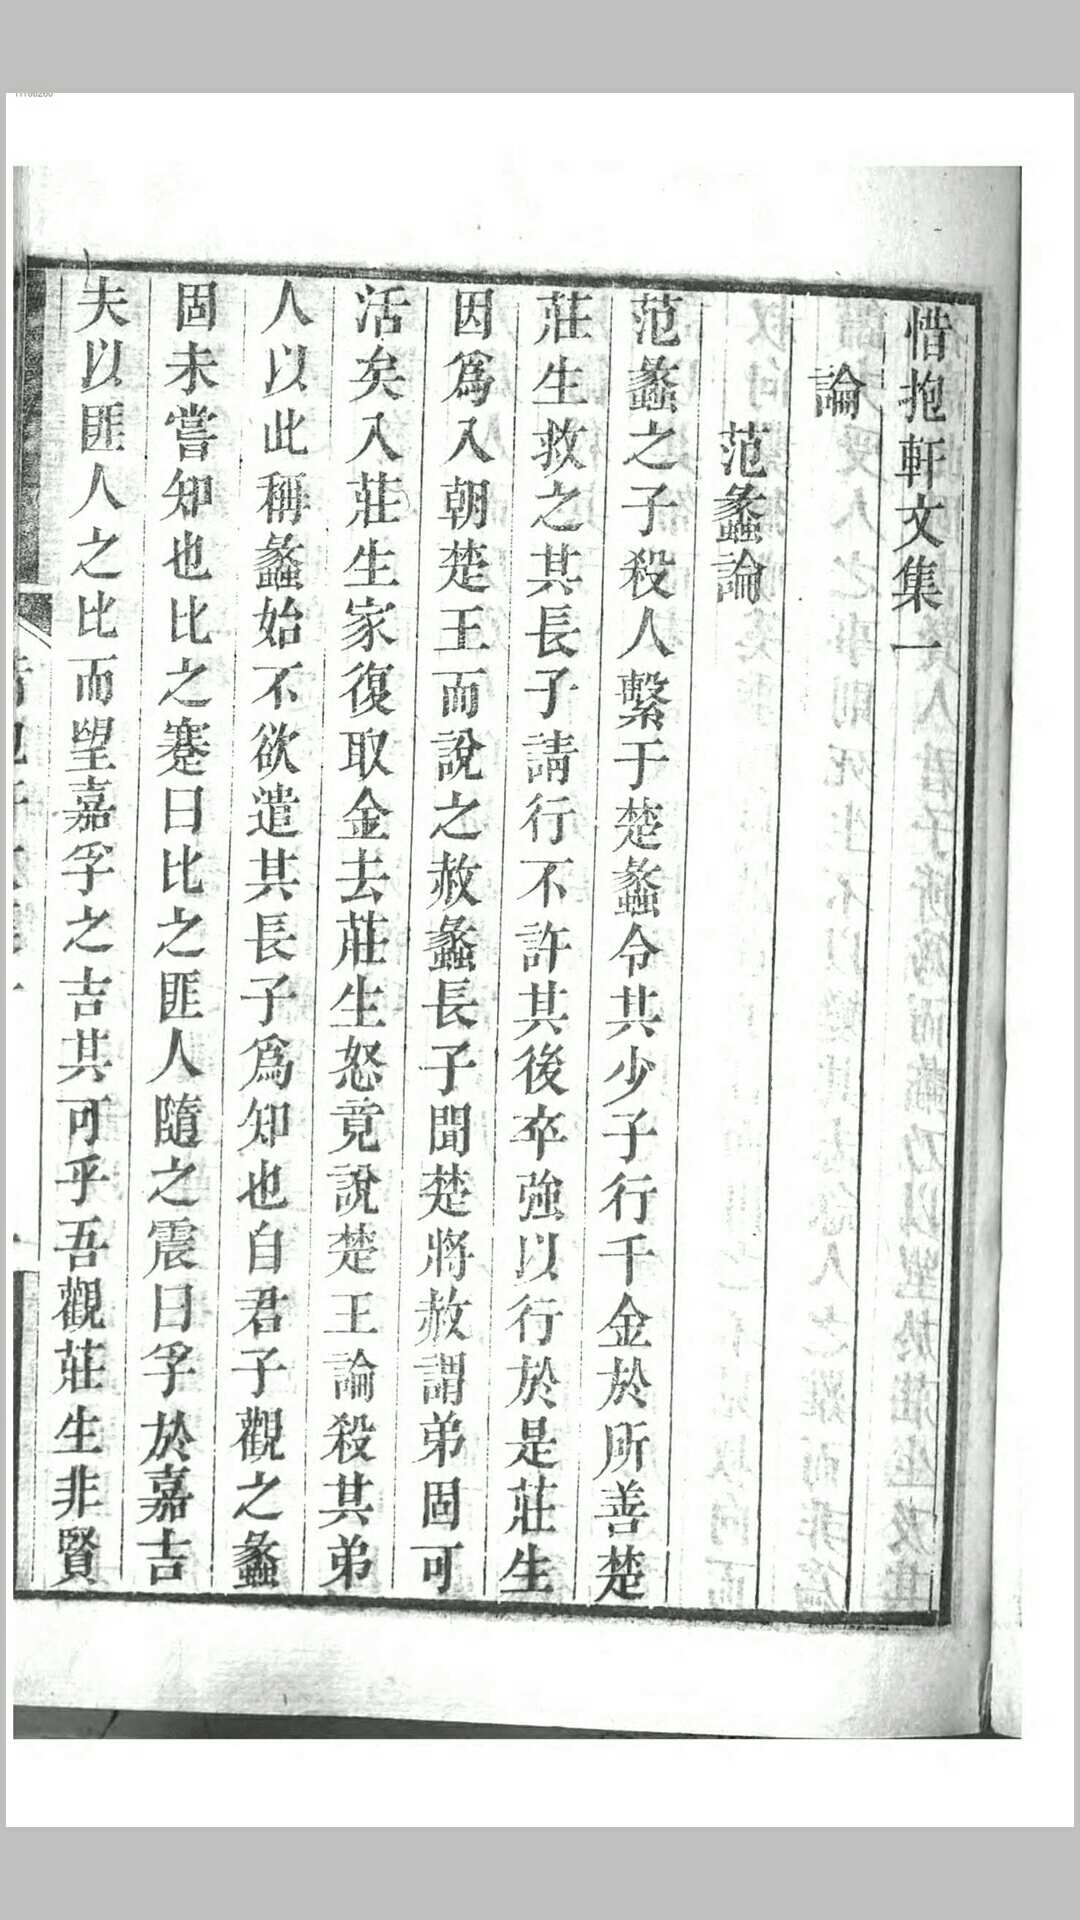 惜抱軒文集一
論
范蠡論
范蠡之子殺人繫于楚蠡令其少子行千金於所善楚
莊生救之其長子請行不許其後卒強以行於是莊生
因爲入朝楚王而說之赦蠡長子聞楚將赦謂弟固可
活矣入莊生家復取金去莊生怒竟說楚王論殺其弟
人以此稱蠡始不欲遣其長子爲知也自君子觀之蠡
固未嘗知也比之蹇曰比之匪人隨之震曰孚於嘉吉
夫以匪人之比而望嘉孚之吉其可乎吾觀莊生非賢